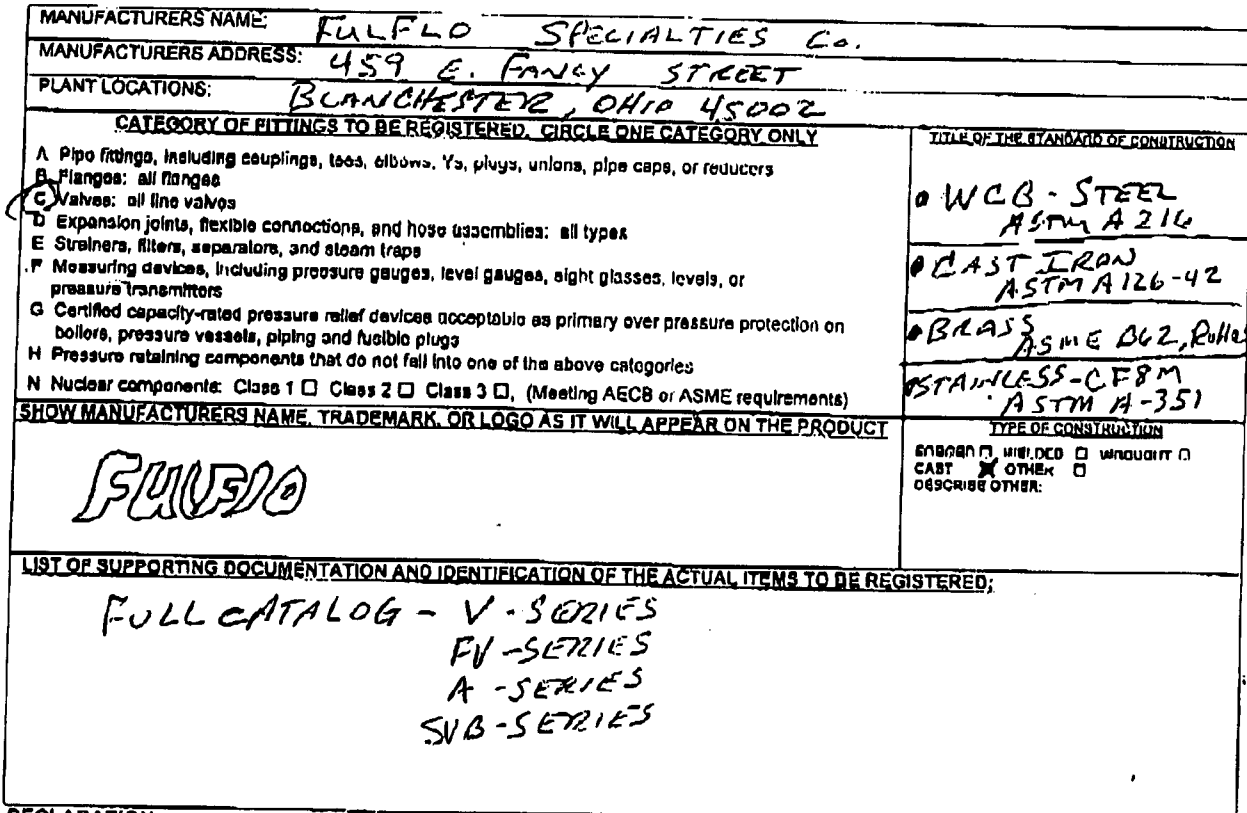 MANUFACTURERS NAME: FULFLO SPECIALTIES Co.
MANUFACTURERS ADDRESS: 459 E. FANCY STREET
PLANT LOCATIONS: BLANCHESTER, OHIO 45002
CATEGORY OF FITTINGS TO BE REGISTERED, CIRCLE ONE CATEGORY ONLY
A Pipe fittings, including couplings, tees, elbows, Ys, plugs, unions, pipe caps, or reducers
B Flanges: all flanges
C Valves: all line valves
D Expansion joints, flexible connections, and hose assemblies: all types
E Strainers, filters, separators, and steam traps
F Measuring devices, including pressure gauges, level gauges, sight glasses, levels, or
pressure transmitters
G Certified capacity-rated pressure relief devices acceptable as primary over pressure protection on
boilers, pressure vessels, piping and fusible plugs
H Pressure retaining components that do not fall into one of the above categories
N Nuclear components: Class 1 ☐ Class 2 ☐ Class 3 ☐, (Meeting AECB or ASME requirements)
TITLE OF THE STANDARD OF CONSTRUCTION
• WCB - STEEL
ASTM A 216
• CAST IRON
ASTM A126-42
• BRASS
ASME B62,
• STAINLESS - CF8M
ASTM A-351
SHOW MANUFACTURERS NAME, TRADEMARK, OR LOGO AS IT WILL APPEAR ON THE PRODUCT
FULFLO
TYPE OF CONSTRUCTION
☐ WELDED ☐ WROUGHT ☐
CAST ☒ OTHER ☐
DESCRIBE OTHER:
LIST OF SUPPORTING DOCUMENTATION AND IDENTIFICATION OF THE ACTUAL ITEMS TO BE REGISTERED;
FULL CATALOG - V - SERIES
FV - SERIES
A - SERIES
SVB - SERIES